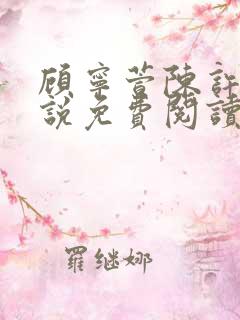 顾宁萱陳許
說免費閱讀
羅继娜